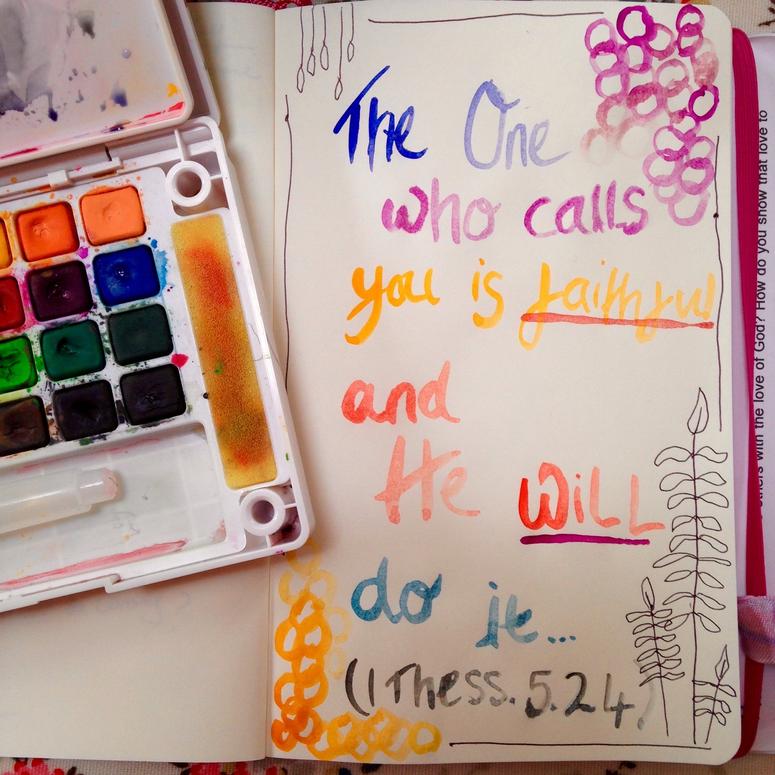 The One
who calls
you is faithful
and
He WiLL
do it...
(1 Thess. 5.24)
others with the love of God? How do you show that love to